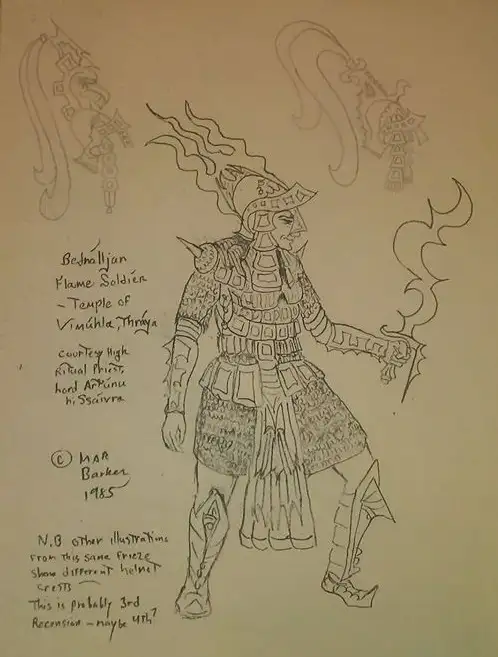 Bednálljan
Flame Soldier
- Temple of
Vimúhla, Thráya
courtesy High
Ritual Priest,
Lord Arkhúnu
hi Ssáivra
© MAR
Barker
1985
N.B other illustrations
from this same frieze
show different helmet
crests
This is probably 3rd
Recension - maybe 4th?